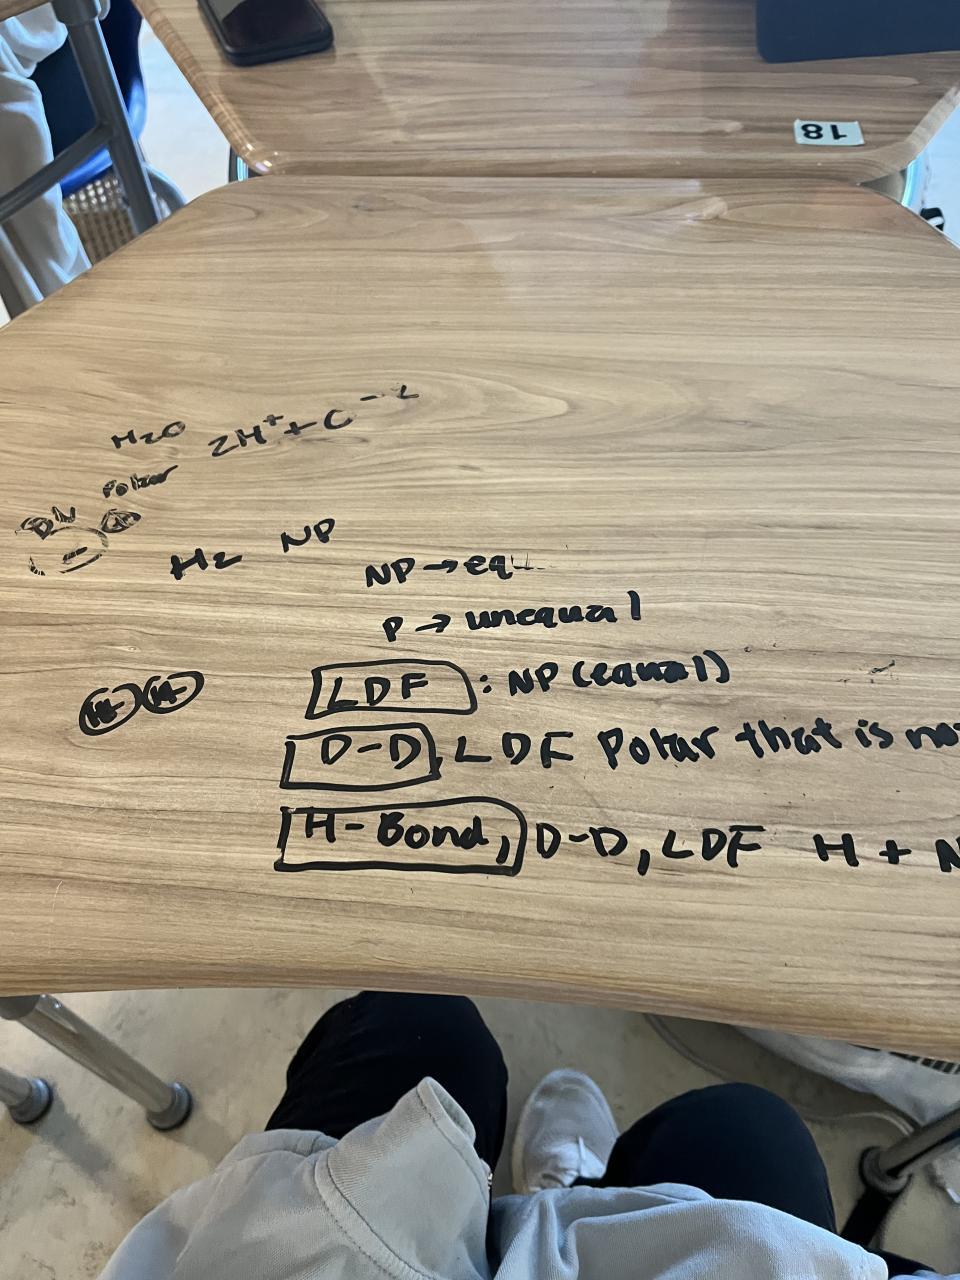 18
H2O 2H⁺ + C⁻²
Polar
H2 NP
NP → equ
P → unequal
H H
LDF : NP (equal)
D-D, LDF Polar that is no
H-Bond, D-D, LDF H + N